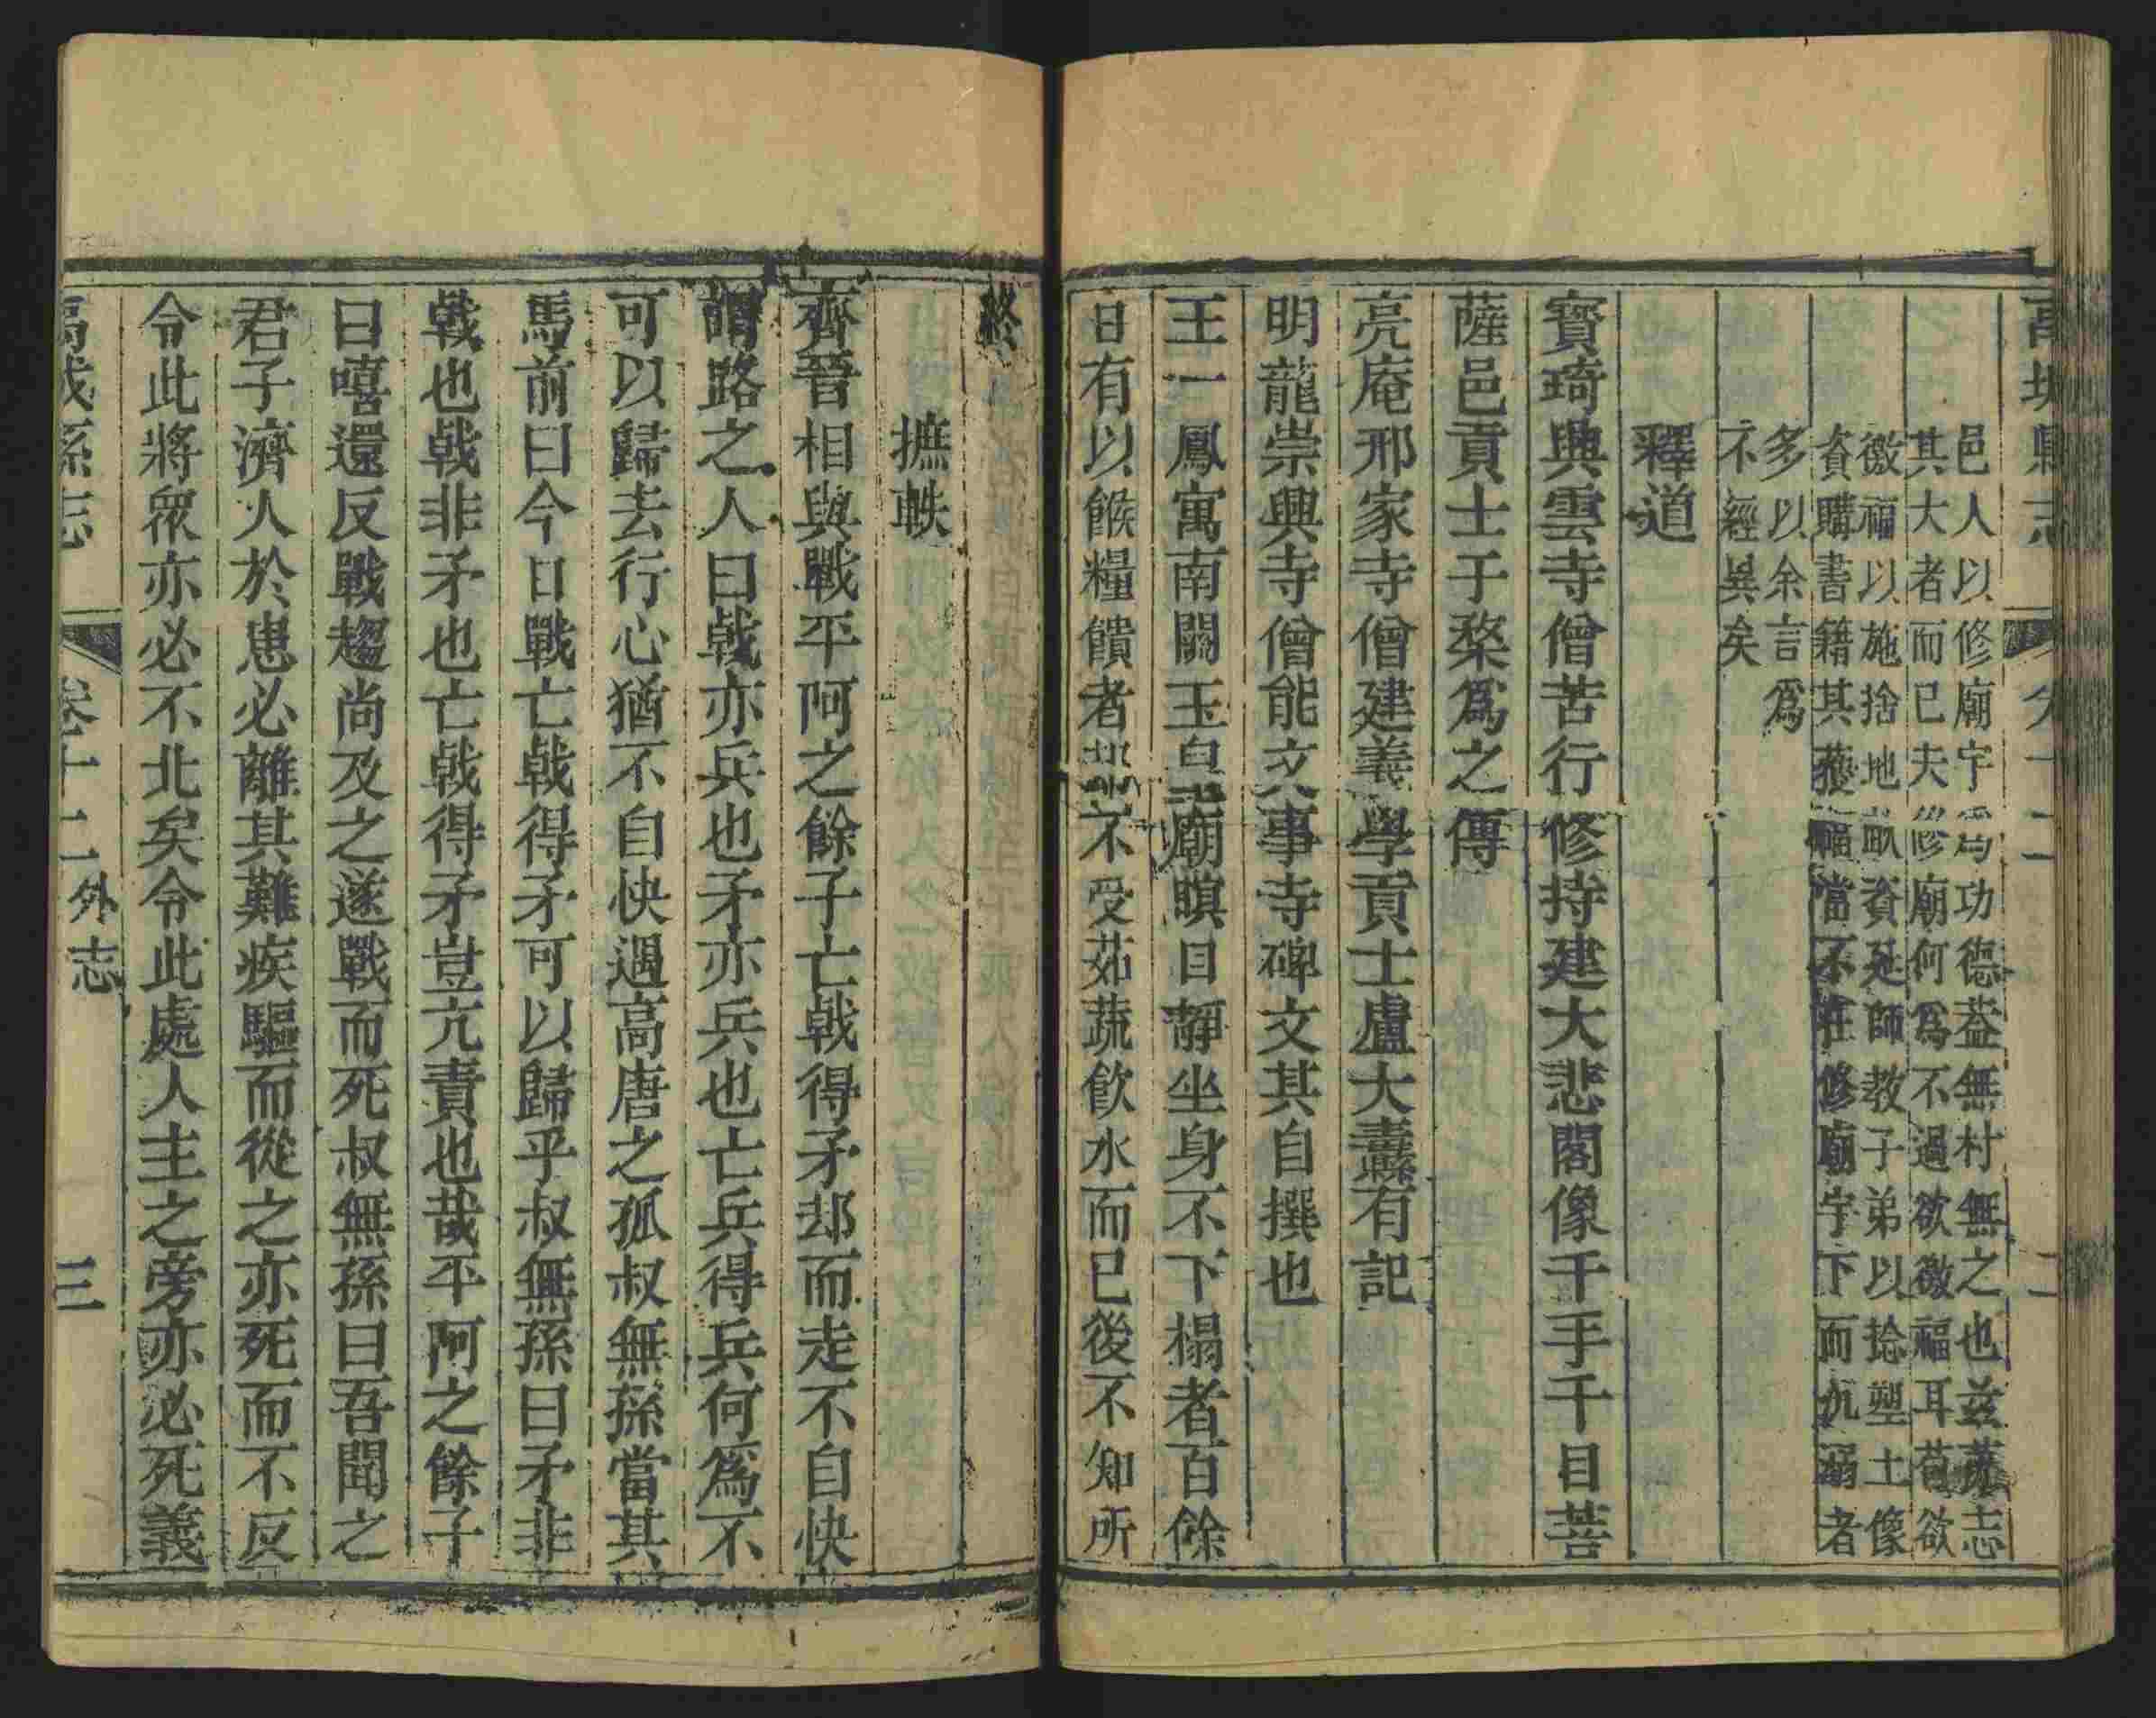 縣志
邑人以修廟宇爲功德葢無村無之也兹蒞志
其大者而已夫修廟何爲不過欲徼福耳苟欲
徼福以施捨地畝資延師教子弟以捻塑土像
資購書籍其獲福當不在修廟宇下而仇溺者
多以余言爲
不經異矣
釋道
寳琦興雲寺僧苦行修持建大悲閣像千手千目菩
薩邑貢士于棻爲之傳
亮庵邢家寺僧建義學貢士盧大纛有記
明龍崇興寺僧能文事寺碑文其自撰也
王一鳳寓南關玉皇廟瞑目靜坐身不下榻者百餘
日有以餱糧饋者却不受茹蔬飲水而已後不知所
終
摭軼
齊晉相與戰平阿之餘子亡戟得矛却而走不自快
謂路之人曰戟亦兵也矛亦兵也亡兵得兵何爲不
可以歸去行心猶不自快遇高唐之孤叔無孫當其
馬前曰今日戰亡戟得矛可以歸乎叔無孫曰矛非
戟也戟非矛也亡戟得矛豈亢責也哉平阿之餘子
曰嘻還反戰趨尚及之遂戰而死叔無孫曰吾聞之
君子濟人於患必離其難疾驅而從之亦死而不反
令此將眾亦必不北矣令此處人主之旁亦必死義
縣志 卷十二外志 三